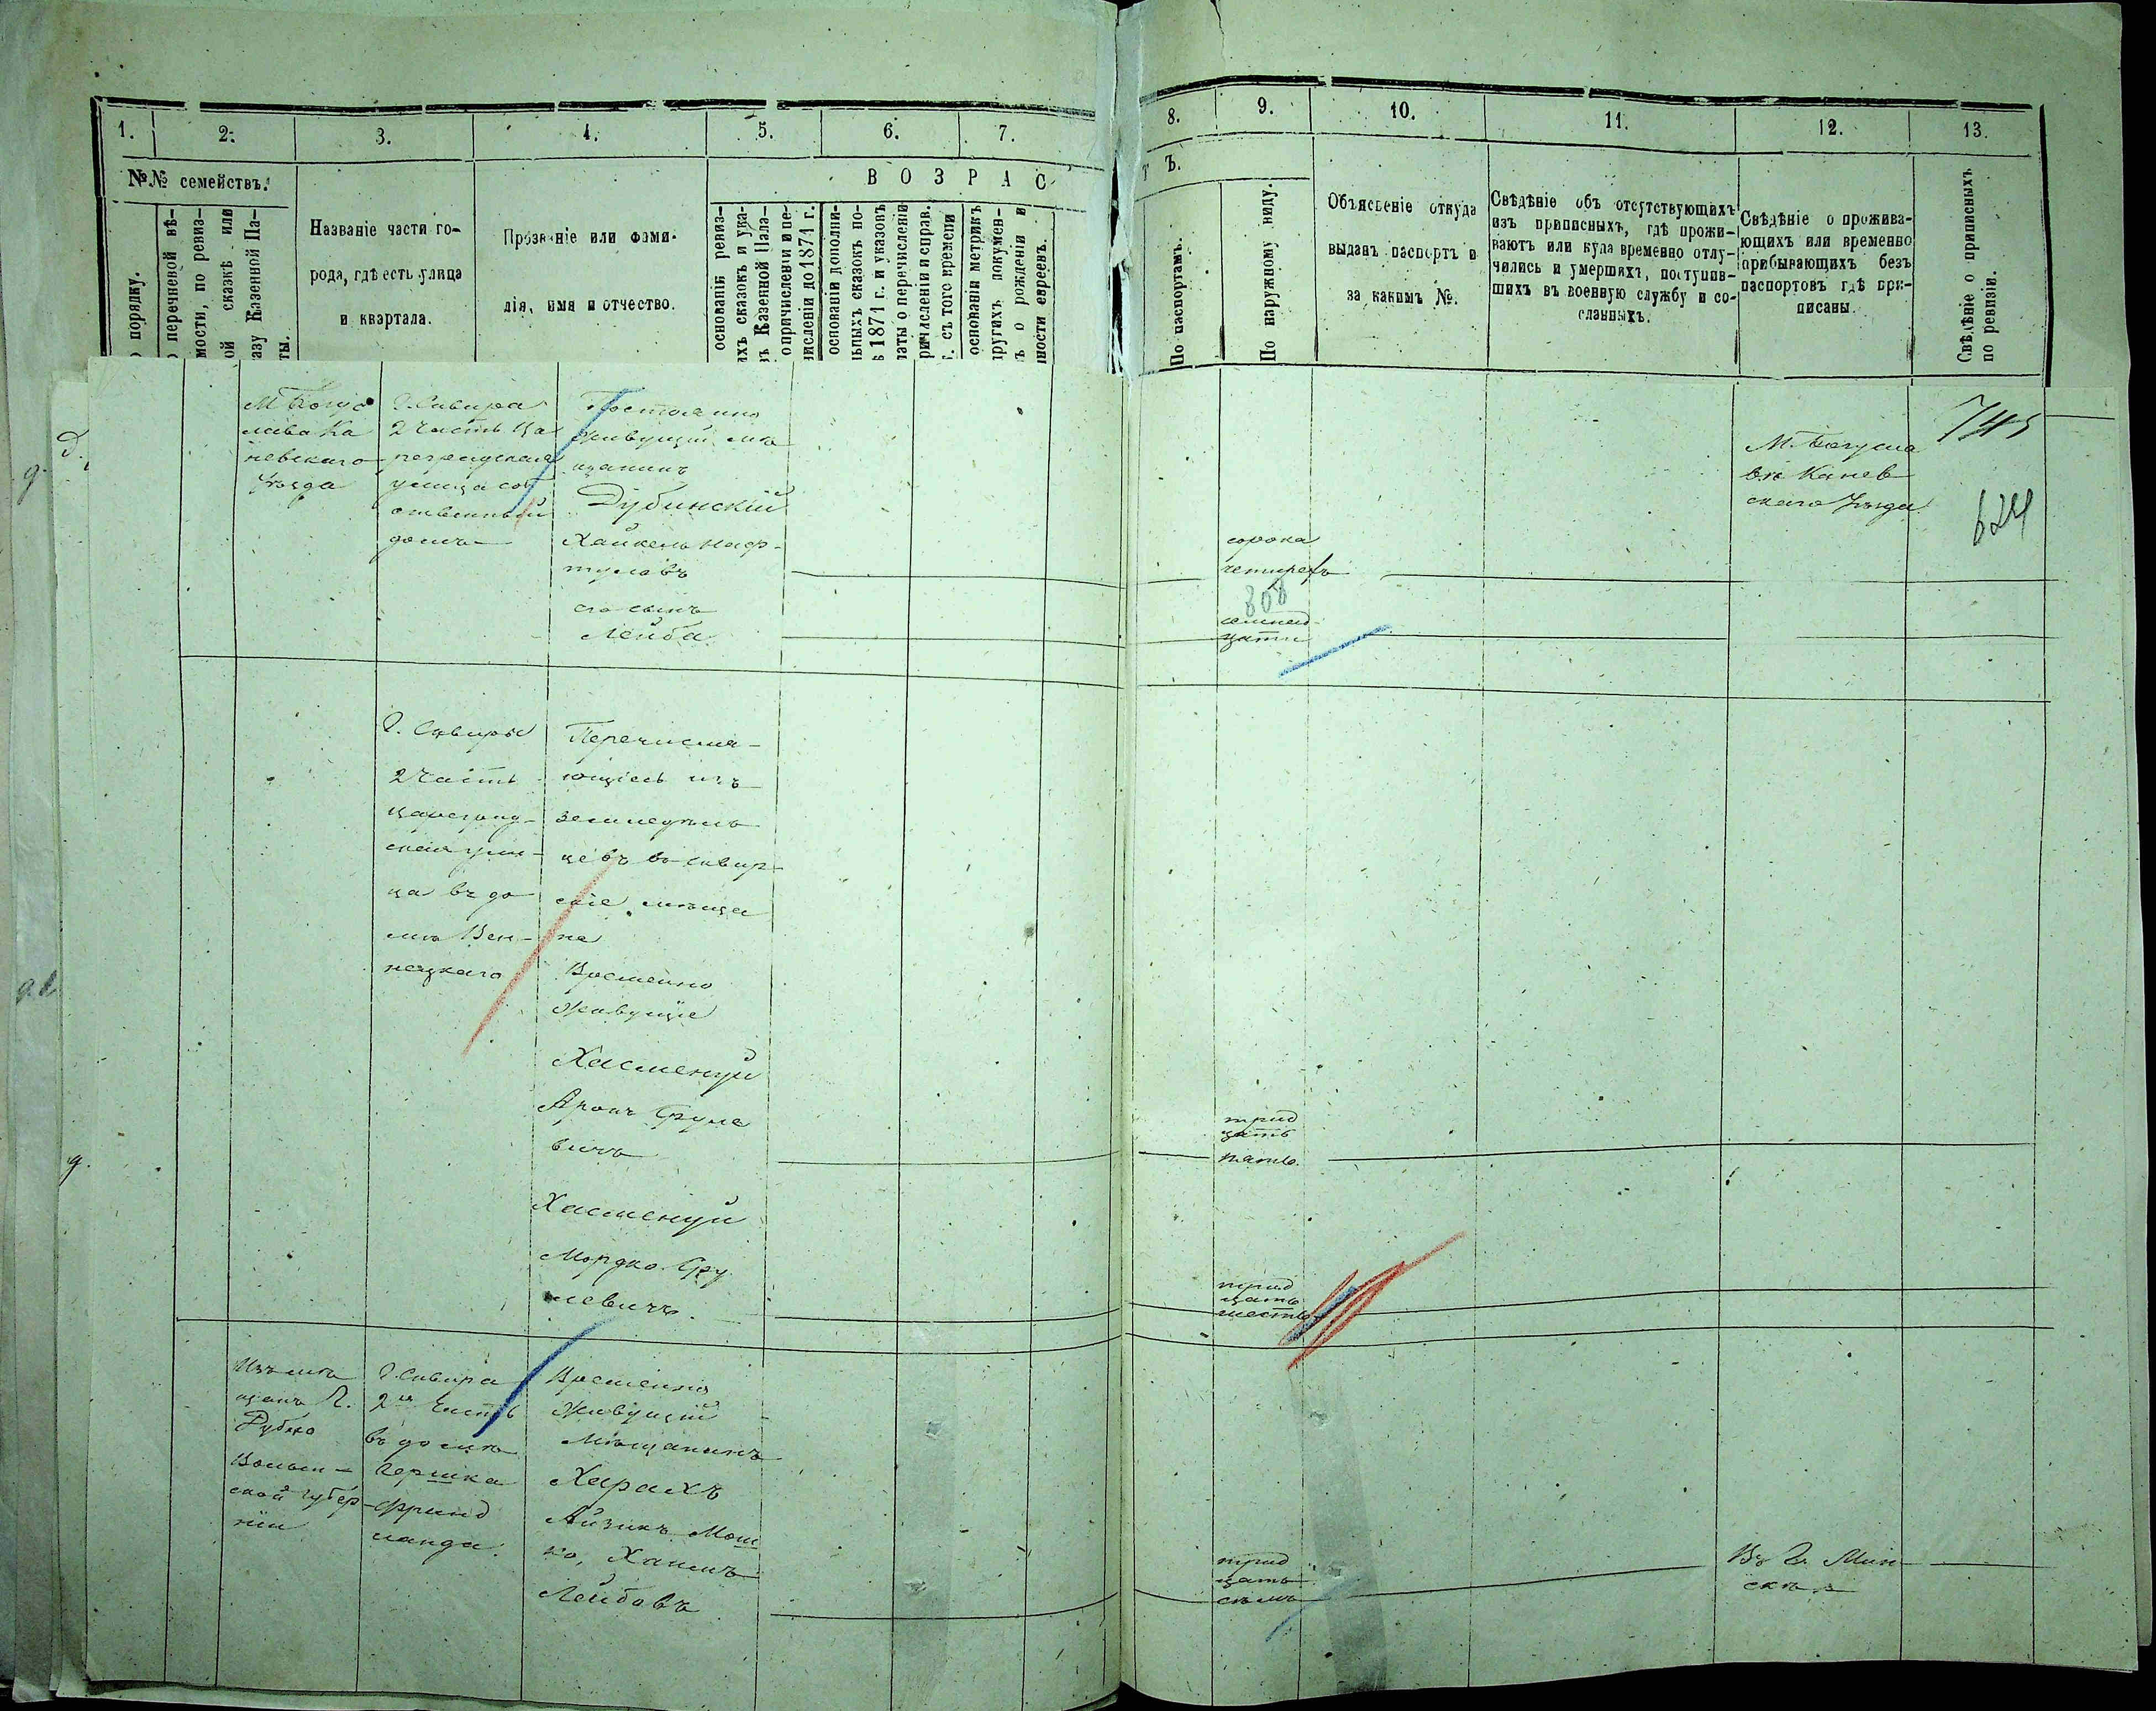 1.
2.
3.
4.
5.
6.
7.
8.
9.
10.
11.
12.
13.
№№ семействъ.
В О З Р А С
Т Ъ.
порядку.
перечневой вѣ-
мости, по ревиз-
ой сказкѣ или
азу Казенной Па-
ты.
Названіе части го-
рода, гдѣ есть улица
и квартала.
Прозваніе или фами-
лія, имя и отчество.
основаніи ревиз-
ихъ сказокъ и ука-
въ Казенной Пала-
о причисленіи и пе-
численіи до 1871 г.
основаніи дополни-
льныхъ сказокъ по-
в 1871 г. и указовъ
латы о перечисленіи
ричисленіи и справ.
г. съ того времени
основаніи метрикъ
другихъ докумен-
ъ о рожденіи и
ности евреевъ.
По паспортамъ.
По наружному виду.
Объясненіе откуда
выданъ паспортъ и
за какимъ №.
Свѣдѣніе объ отсутствующихъ
изъ приписныхъ, гдѣ прожи-
ваютъ или куда временно отлу-
чились и умершихъ, поступив-
шихъ въ военную службу и со-
сланныхъ.
Свѣдѣніе о прожива-
ющихъ или временно
прибывающихъ безъ
паспортовъ гдѣ при-
писаны.
Свѣдѣніе о приписныхъ
по ревизіи.
М Богус
лава Ка
невскаго
Уѣзда
Г. Сквира
2 Часть Ца
реградская
улица соб
ственный
домъ
Постоянно
живущій мѣ
щанинъ
Дубинскій
Хайкель Наф-
туловъ
его сынъ
Лейба
сорока
четырехъ
808
семнад
цати
М. Богусла
въ Канев
скаго Уѣзда
745
624
Г. Сквиры
2 Часть
Цареград-
ская ули-
ца въ до
мѣ Вин-
ницкаго
Перечисля-
ющіеся изъ
земледѣль
цевъ въ сквир-
скіе мѣща
не
Временно
живущіе
Хасменуй
Аронъ Сруле
вичъ
трид
цать
пять.
Хасменуй
Мордко Сру
левичъ.
трид
цать
шесть
Изъ мѣ
щанъ Г.
Дубно
Волын-
ской губер-
ніи
Г. Сквира
2я Часть
въ домѣ
Гершка
Фринд
ланда.
Временно
живущій
Мѣщанинъ
Харахъ
Айзикъ Мош
ко, Хаимъ
Лейбовъ
трид
цать
семь
Въ Г. Мин
скѣ